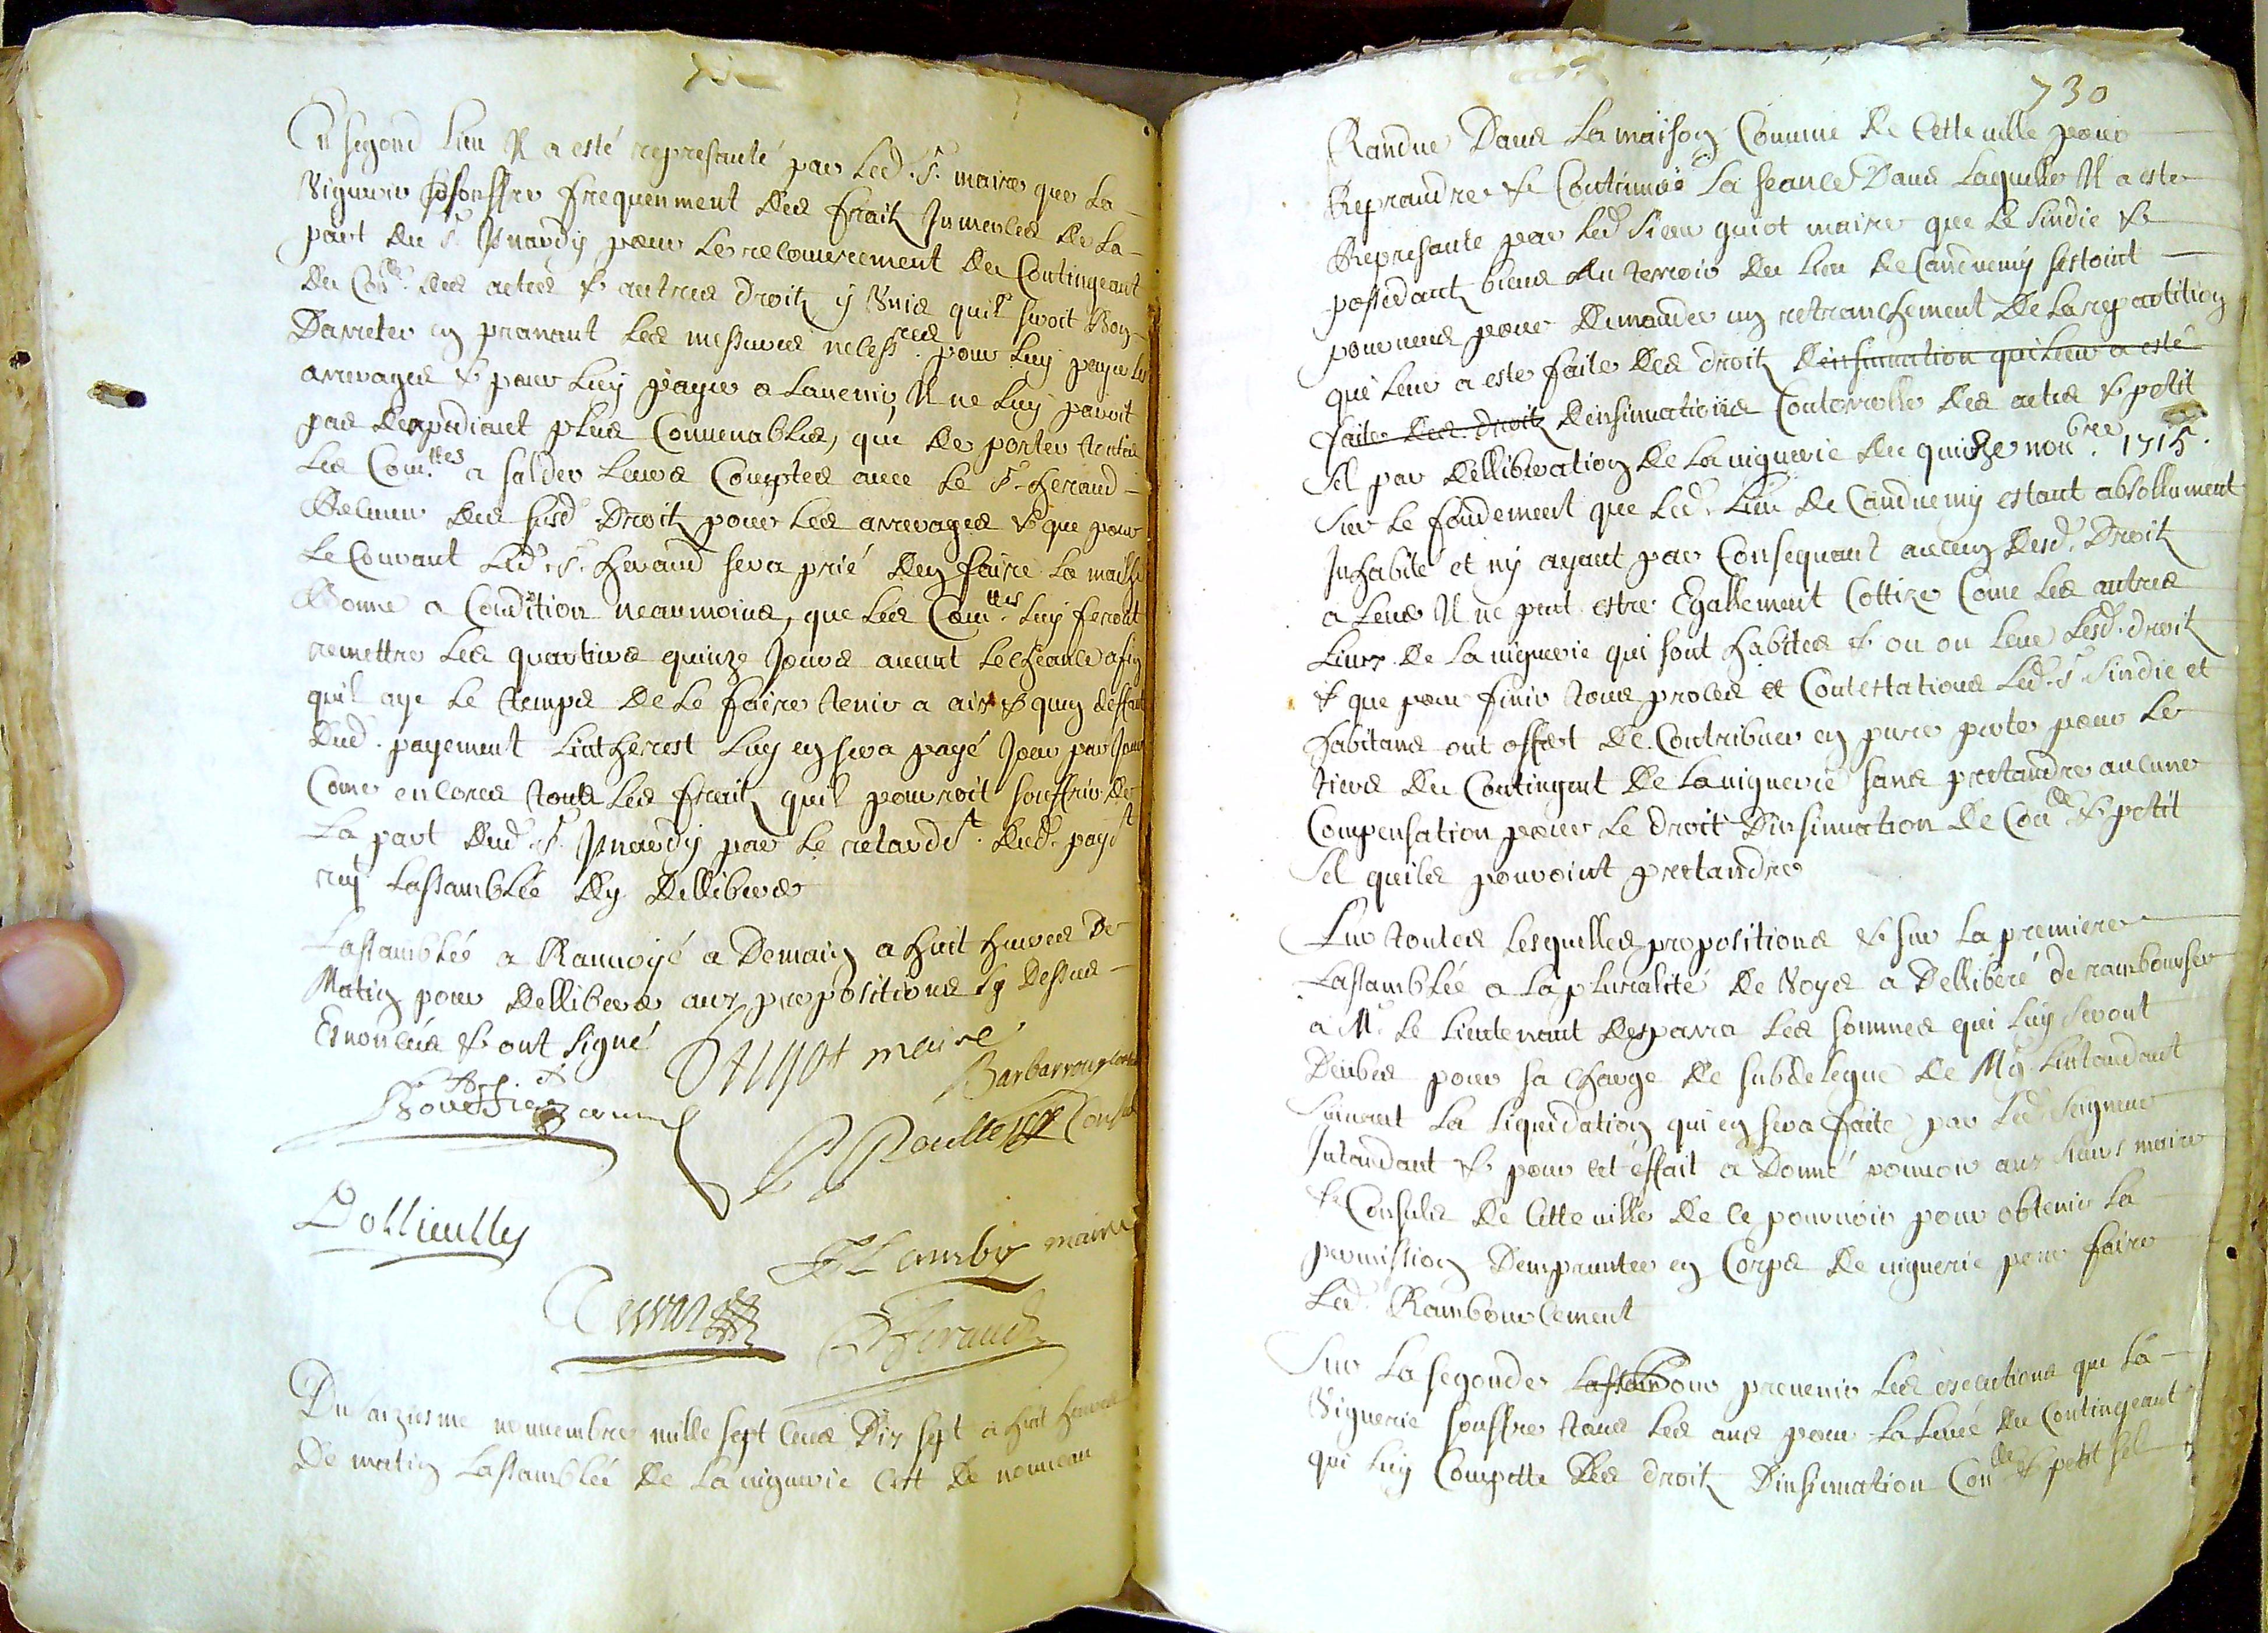 En segond lieu Il a esté represanté par Led. Sr. maire que La
Viguerie souffre frequenment des fraitz Jmmences de La
part du Sr. Jsnardy pour Le recouvrement du Contingeant
du Conlle. des actes & autres droitz y Unis quil seroit Bon
Darreter en prenant Les messures necessres. pour Luy payer Les
arrerages & pour Luy payer a Lavenir, Il ne Luy paroit
pas Dexpediant plus Convenables, que de porter toutes
Les Comtes a solder Leurs Comptes avec Le Sr. heraud
Releveur des susd. Droitz pour Les arrerages & que pour
Le Courant Led. Sr. heraud sera prié Den faire La maille
Bonne a Condition neanmoins, que Les Comtes. Luy feront
remettre Les quartiers quinze Jours avant Lecheance afin
quil aye Le temps de Le faire tenir a aix & quen deffaut
dud. payement Lintherest Luy en sera payé Jour par Jour
Come encores tous Les fraitz quil pourroit souffrir de
La part dud. Sr. Jsnardy par Le retardt. dud. payt
rqt Lassamblée dy dellibere
Lassamblée a Ranvoyé a Demain a huit heures de
Matin pour dellibere aux propositions sy dessus
Enoncées & ont signé
maire
Barbarroux
Du onziesme novembre mille sept Cens Dix sept a huit heures
De matin Lassamblée de La viguerie Cest de nouveau
730
Randue Dans La maison Comune de Cette ville pour
Reprandre & Continuer La seance Dans Laquelle Il a este
Represante par Led Sieur guiot maire que Le sindic &
possedantz biens Au terroir du Lieu de Canduemy sestoint
pourveus pour Demander un retranchement De La repartition
que Leur a este faite des droitz Deinsinuation qui Leur a esté
faite des droitz deinsinuations Controrolle des actes & petit
sel par dellibération de La viguerie du quinze novbre. 1715.
sur Le fondement que Led. Lieu de Canduemy estant absollument
Inhabité et ny ayant par Consequant aucun desd. Droitz
a Lever Il ne peut estre Egallement Cottizé Come Les autres
Lieux de La viguerie qui sont habités & ou on Leve Lesd. droitz
& que pour finir tous proces et Contestations Led. Sr sindic et
habitans ont offert de Contribuer en pure perte pour Le
tiers du Contingent de La viguerie sans prettandre aucune
Compensation pour Le droit Dinsinuation de Conlle & petit
sel quils pouvoint prettandre
Sur toutes Lesquelles propositions & sur La premiere
Lassamblée a La pluralité de Voyes a Dellibéré de rambourser
a Mr. Le Lieutenant desparra Les sommes qui Luy seront
Deubes pour sa Charge de subdelegue de Mgr. Lintandant
suivant La Liquidation qui en sera faite par Led Seigneur
Intandant & pour cet éffait a Donné pouvoir aux sieurs maire
& Consuls de Cette ville de ce pourvoir pour obtenir La
permission Demprunter en Corps de viguerie pour faire
Led. Rambourcement
Sur La segonde Lassam Pour prevenir Les executions que La
Viguerie souffre tous Les ans pour La Levé du Contingeant
qui Luy Compette Des droitz Dinsinuation Conlle & petit sel